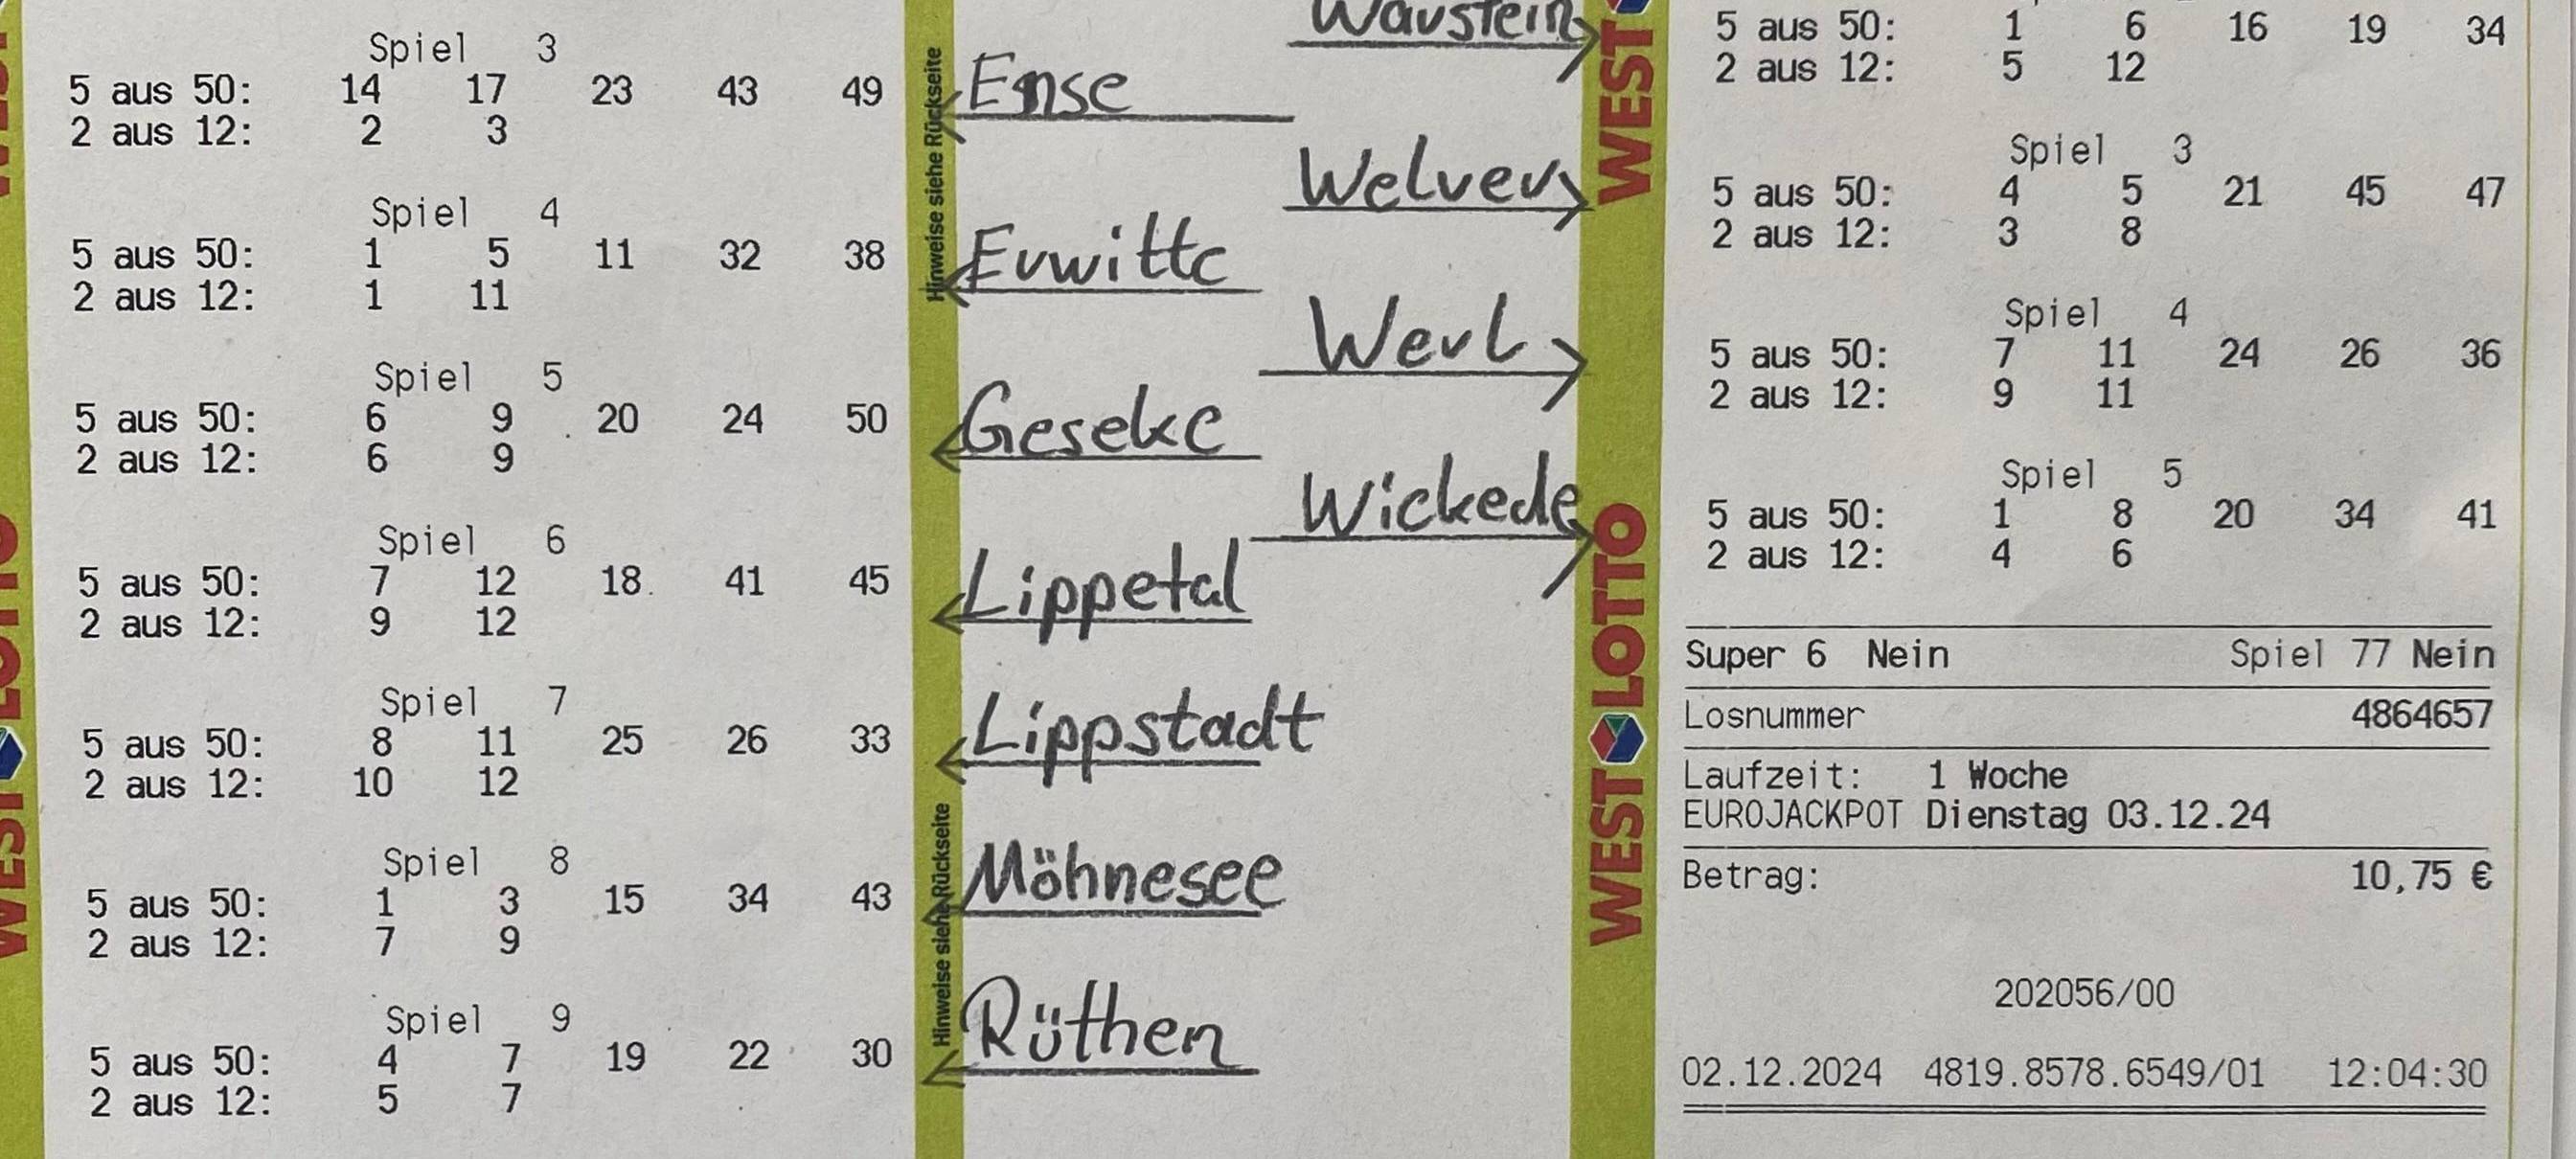 Spiel 3
5 aus 50: 14 17 23 43 49
2 aus 12: 2 3
Spiel 4
5 aus 50: 1 5 11 32 38
2 aus 12: 1 11
Spiel 5
5 aus 50: 6 9 20 24 50
2 aus 12: 6 9
Spiel 6
5 aus 50: 7 12 18 41 45
2 aus 12: 9 12
Spiel 7
5 aus 50: 8 11 25 26 33
2 aus 12: 10 12
Spiel 8
5 aus 50: 1 3 15 34 43
2 aus 12: 7 9
Spiel 9
5 aus 50: 4 7 19 22 30
2 aus 12: 5 7
Hinweise siehe Rückseite
Hinweise siehe Rückseite
Warstein
Ense
Welver
Erwitte
Werl
Geseke
Wickede
Lippetal
Lippstadt
Möhnesee
Rüthen
WEST
WEST LOTTO
5 aus 50: 1 6 16 19 34
2 aus 12: 5 12
Spiel 3
5 aus 50: 4 5 21 45 47
2 aus 12: 3 8
Spiel 4
5 aus 50: 7 11 24 26 36
2 aus 12: 9 11
Spiel 5
5 aus 50: 1 8 20 34 41
2 aus 12: 4 6
Super 6 Nein Spiel 77 Nein
Losnummer 4864657
Laufzeit: 1 Woche
EUROJACKPOT Dienstag 03.12.24
Betrag: 10,75 €
202056/00
02.12.2024 4819.8578.6549/01 12:04:30